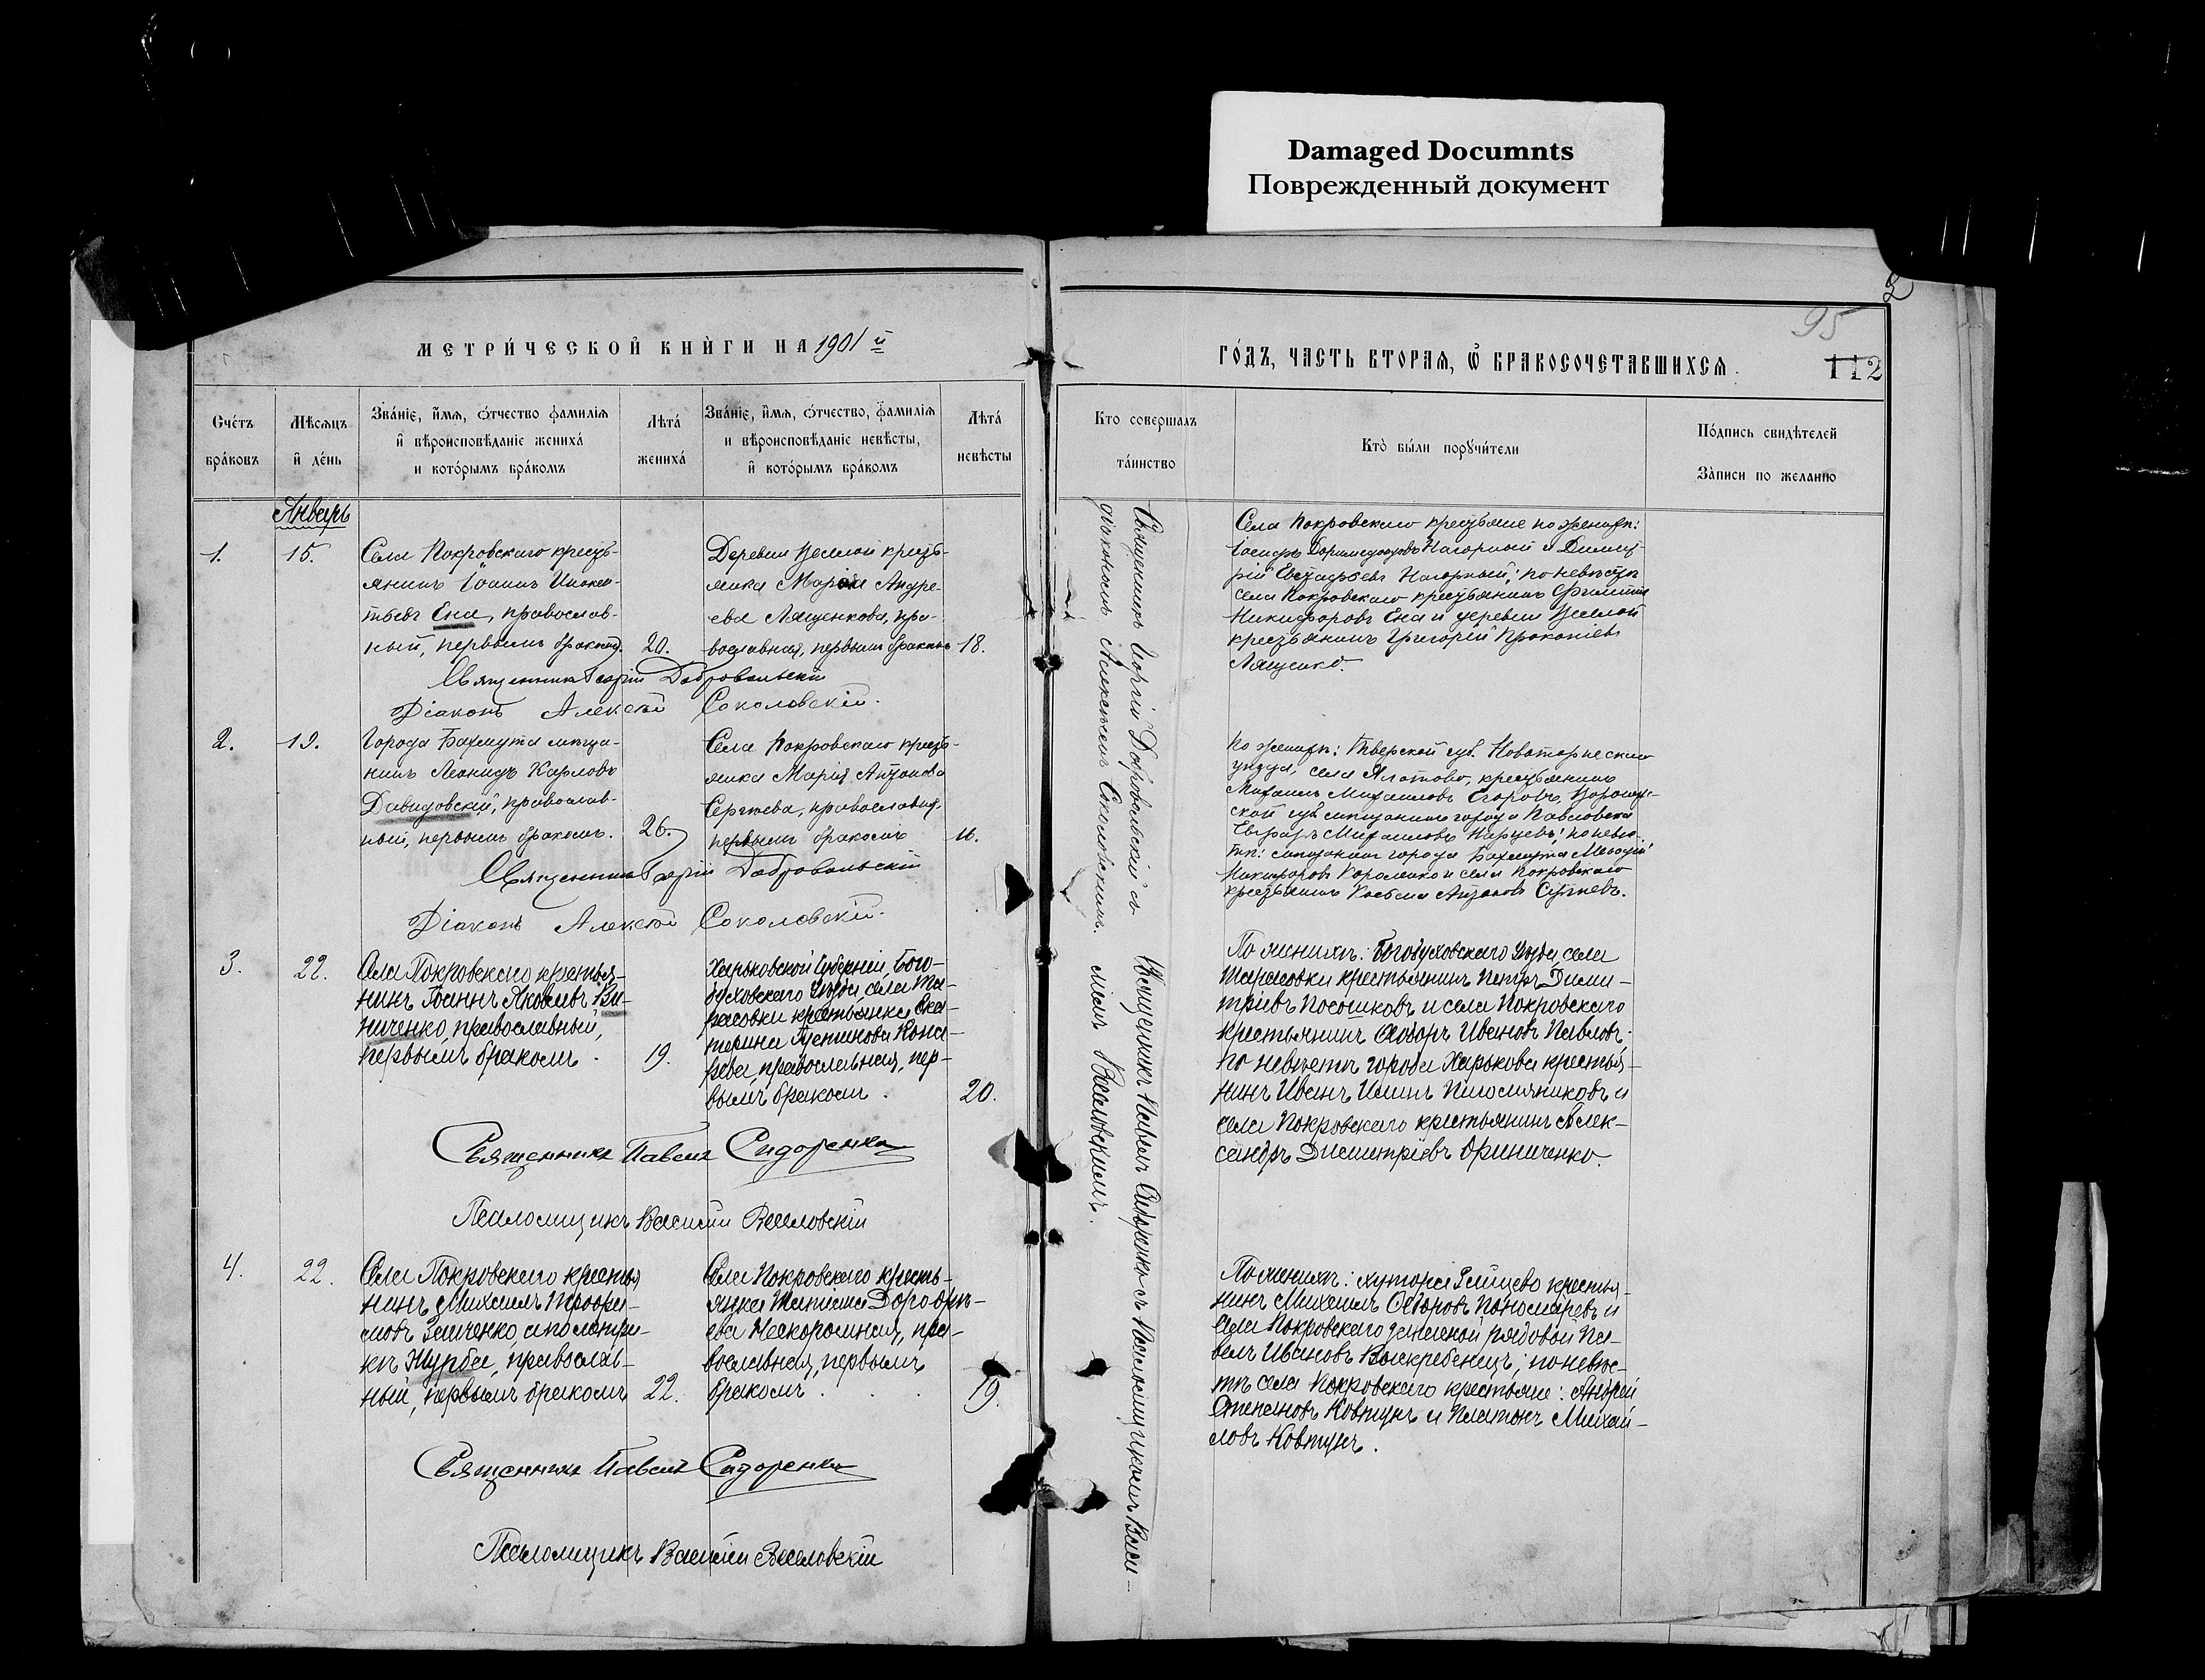 Damaged Documnts
Поврежденный документ
2
95
112
МЕТРИ́ЧЕСКОЙ КНИ́ГИ НА 1901 й
ГО́ДЪ, ЧАСТЬ ВТОРАЯ, Ѽ БРАКОСОЧЕТАВШИХСЯ.
Сче́тъ бра́ковъ
Мѣсяцъ и҆ де́нь
Зва́нїе, и҆́мя, ѻ҆́тчество фамилїя и҆ вѣроисповѣ́данїе жениха́ и кото́рымъ бра́комъ
Лѣта́ жениха́
Зва́нїе, и҆́мя, ѻ҆́тчество, фамилїя и вѣроисповѣ́данїе невѣ́сты, и҆ кото́рымъ бра́комъ
Лѣта́ невѣсты
Кто совершалъ та́инство
Кто̀ бы́ли пору́чители
По́дпись свидѣтелей За́писи по желанїю
Январь
1.
15.
Села Покровскаго кресть-
янинъ Іоаннъ Инокен-
тьевъ Ена, православ-
ный, первымъ бракомъ.
20.
Деревни Веселой кресть-
янка Марія Андре-
ева Лященкова, пра-
вославная, первымъ бракомъ
18.
Села Покровскаго крестьяне по женихѣ:
Іосифъ Доримедонтовъ Нагорный и Димит-
рій Евстафьевъ Нагорный; по невѣстѣ
села Покровскаго крестьянинъ Филиппъ
Никифоровъ Ена и деревни Веселой
крестьянинъ Григорій Прокопіевъ
Лященко.
Священникъ Георгій Добровольскій
Діаконъ Алексій Соколовскій.
Священникъ Георгій Добровольскій съ
діакономъ Алексѣемъ Соколовскимъ.
2.
19.
Города Бахмута мѣща-
нинъ Леонидъ Карловъ
Давидовскій, православ-
ный, первымъ бракомъ.
26.
Села Покровскаго кресть-
янка Марія Антонова
Сергѣева, православная,
первымъ бракомъ
16.
По женихѣ: Тверской губ. Новоторжскаго
уѣзда, села Ялотово, крестьянинъ
Михаилъ Михаиловъ Егоровъ, Воронеж-
ской губ. мѣщанинъ города Павловска
Михаиловъ
по невѣс-
тѣ: мѣщанинъ города Бахмута Меѳодій
Никифоровъ Короленко и села Покровскаго
крестьянинъ Косьма Антоновъ Сергѣевъ.
Священникъ Георгій Добровольскій
Діаконъ Алексій Соколовскій.
3.
22.
Села Покровскаго крестья-
нинъ Іоаннъ Яковлевъ Ви-
ниченко, православный,
первымъ бракомъ.
19.
Харьковской Губерніи, Бого-
духовскаго уѣзда, села Та-
расовки крестьянка Ека-
терина Іустинова Кона-
рева, православная, пер-
вымъ бракомъ.
20.
По женихѣ: Богодуховскаго Уѣзда, села
Тарасовки крестьянинъ Петръ Дими-
тріевъ Посошковъ и села Покровскаго
крестьянинъ Ѳедоръ Ивановъ Павловъ.
по невѣстѣ города Харькова крестья-
нинъ Иванъ Ильинъ и
села Покровскаго крестьянинъ Алек-
сандръ Димитріевъ Ориниченко.
Священникъ Павелъ Сидоренко
Псаломщикъ Василій Веселовскій
Священникъ Павелъ Сидоренко съ Псаломщикомъ Васи-
ліемъ Веселовскимъ.
4.
22.
Села Покровскаго крестья
нинъ Михаилъ Трофи-
мовъ Заиченко, а по метри-
кѣ Журба, православ-
ный, первымъ бракомъ
22.
Села Покровскаго кресть-
янка Татіана Дороѳѣ-
ева Нескоромная, пра-
вославная, первымъ
бракомъ
19.
По женихѣ: хутора Зайцево крестья-
нинъ Михаилъ Ѳедоровъ Пономаревъ и
села Покровскаго запасной рядовой Па-
велъ Ивановъ Выскребенецъ; по невѣс-
тѣ села Покровскаго крестьяне: Андрей
Степановъ Ковтунъ и Платонъ Михай-
ловъ Ковтунъ.
Священникъ Павелъ Сидоренко
Псаломщикъ Василій Веселовскій